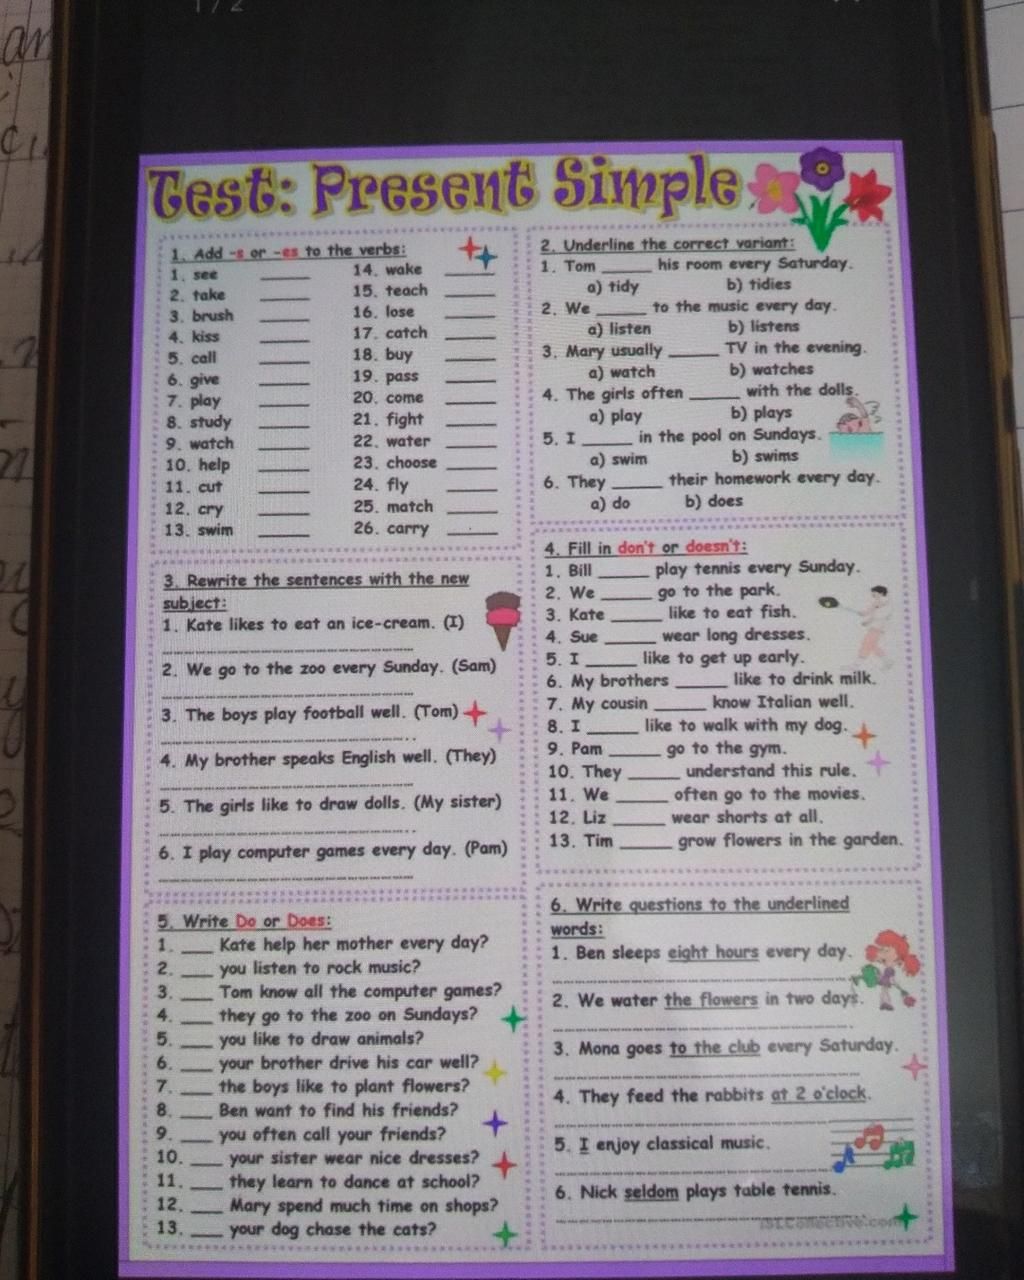 1 / 2
Test: Present Simple
1. Add -s or -es to the verbs:
1. see ______ 14. wake ______
2. take ______ 15. teach ______
3. brush ______ 16. lose ______
4. kiss ______ 17. catch ______
5. call ______ 18. buy ______
6. give ______ 19. pass ______
7. play ______ 20. come ______
8. study ______ 21. fight ______
9. watch ______ 22. water ______
10. help ______ 23. choose ______
11. cut ______ 24. fly ______
12. cry ______ 25. match ______
13. swim ______ 26. carry ______
2. Underline the correct variant:
1. Tom ______ his room every Saturday.
a) tidy b) tidies
2. We ______ to the music every day.
a) listen b) listens
3. Mary usually ______ TV in the evening.
a) watch b) watches
4. The girls often ______ with the dolls.
a) play b) plays
5. I ______ in the pool on Sundays.
a) swim b) swims
6. They ______ their homework every day.
a) do b) does
3. Rewrite the sentences with the new
subject:
1. Kate likes to eat an ice-cream. (I)
2. We go to the zoo every Sunday. (Sam)
3. The boys play football well. (Tom)
4. My brother speaks English well. (They)
5. The girls like to draw dolls. (My sister)
6. I play computer games every day. (Pam)
4. Fill in don't or doesn't:
1. Bill ______ play tennis every Sunday.
2. We ______ go to the park.
3. Kate ______ like to eat fish.
4. Sue ______ wear long dresses.
5. I ______ like to get up early.
6. My brothers ______ like to drink milk.
7. My cousin ______ know Italian well.
8. I ______ like to walk with my dog.
9. Pam ______ go to the gym.
10. They ______ understand this rule.
11. We ______ often go to the movies.
12. Liz ______ wear shorts at all.
13. Tim ______ grow flowers in the garden.
5. Write Do or Does:
1. ____ Kate help her mother every day?
2. ____ you listen to rock music?
3. ____ Tom know all the computer games?
4. ____ they go to the zoo on Sundays?
5. ____ you like to draw animals?
6. ____ your brother drive his car well?
7. ____ the boys like to plant flowers?
8. ____ Ben want to find his friends?
9. ____ you often call your friends?
10. ____ your sister wear nice dresses?
11. ____ they learn to dance at school?
12. ____ Mary spend much time on shops?
13. ____ your dog chase the cats?
6. Write questions to the underlined
words:
1. Ben sleeps eight hours every day.
2. We water the flowers in two days.
3. Mona goes to the club every Saturday.
4. They feed the rabbits at 2 o'clock.
5. I enjoy classical music.
6. Nick seldom plays table tennis.
iSLCollective.com